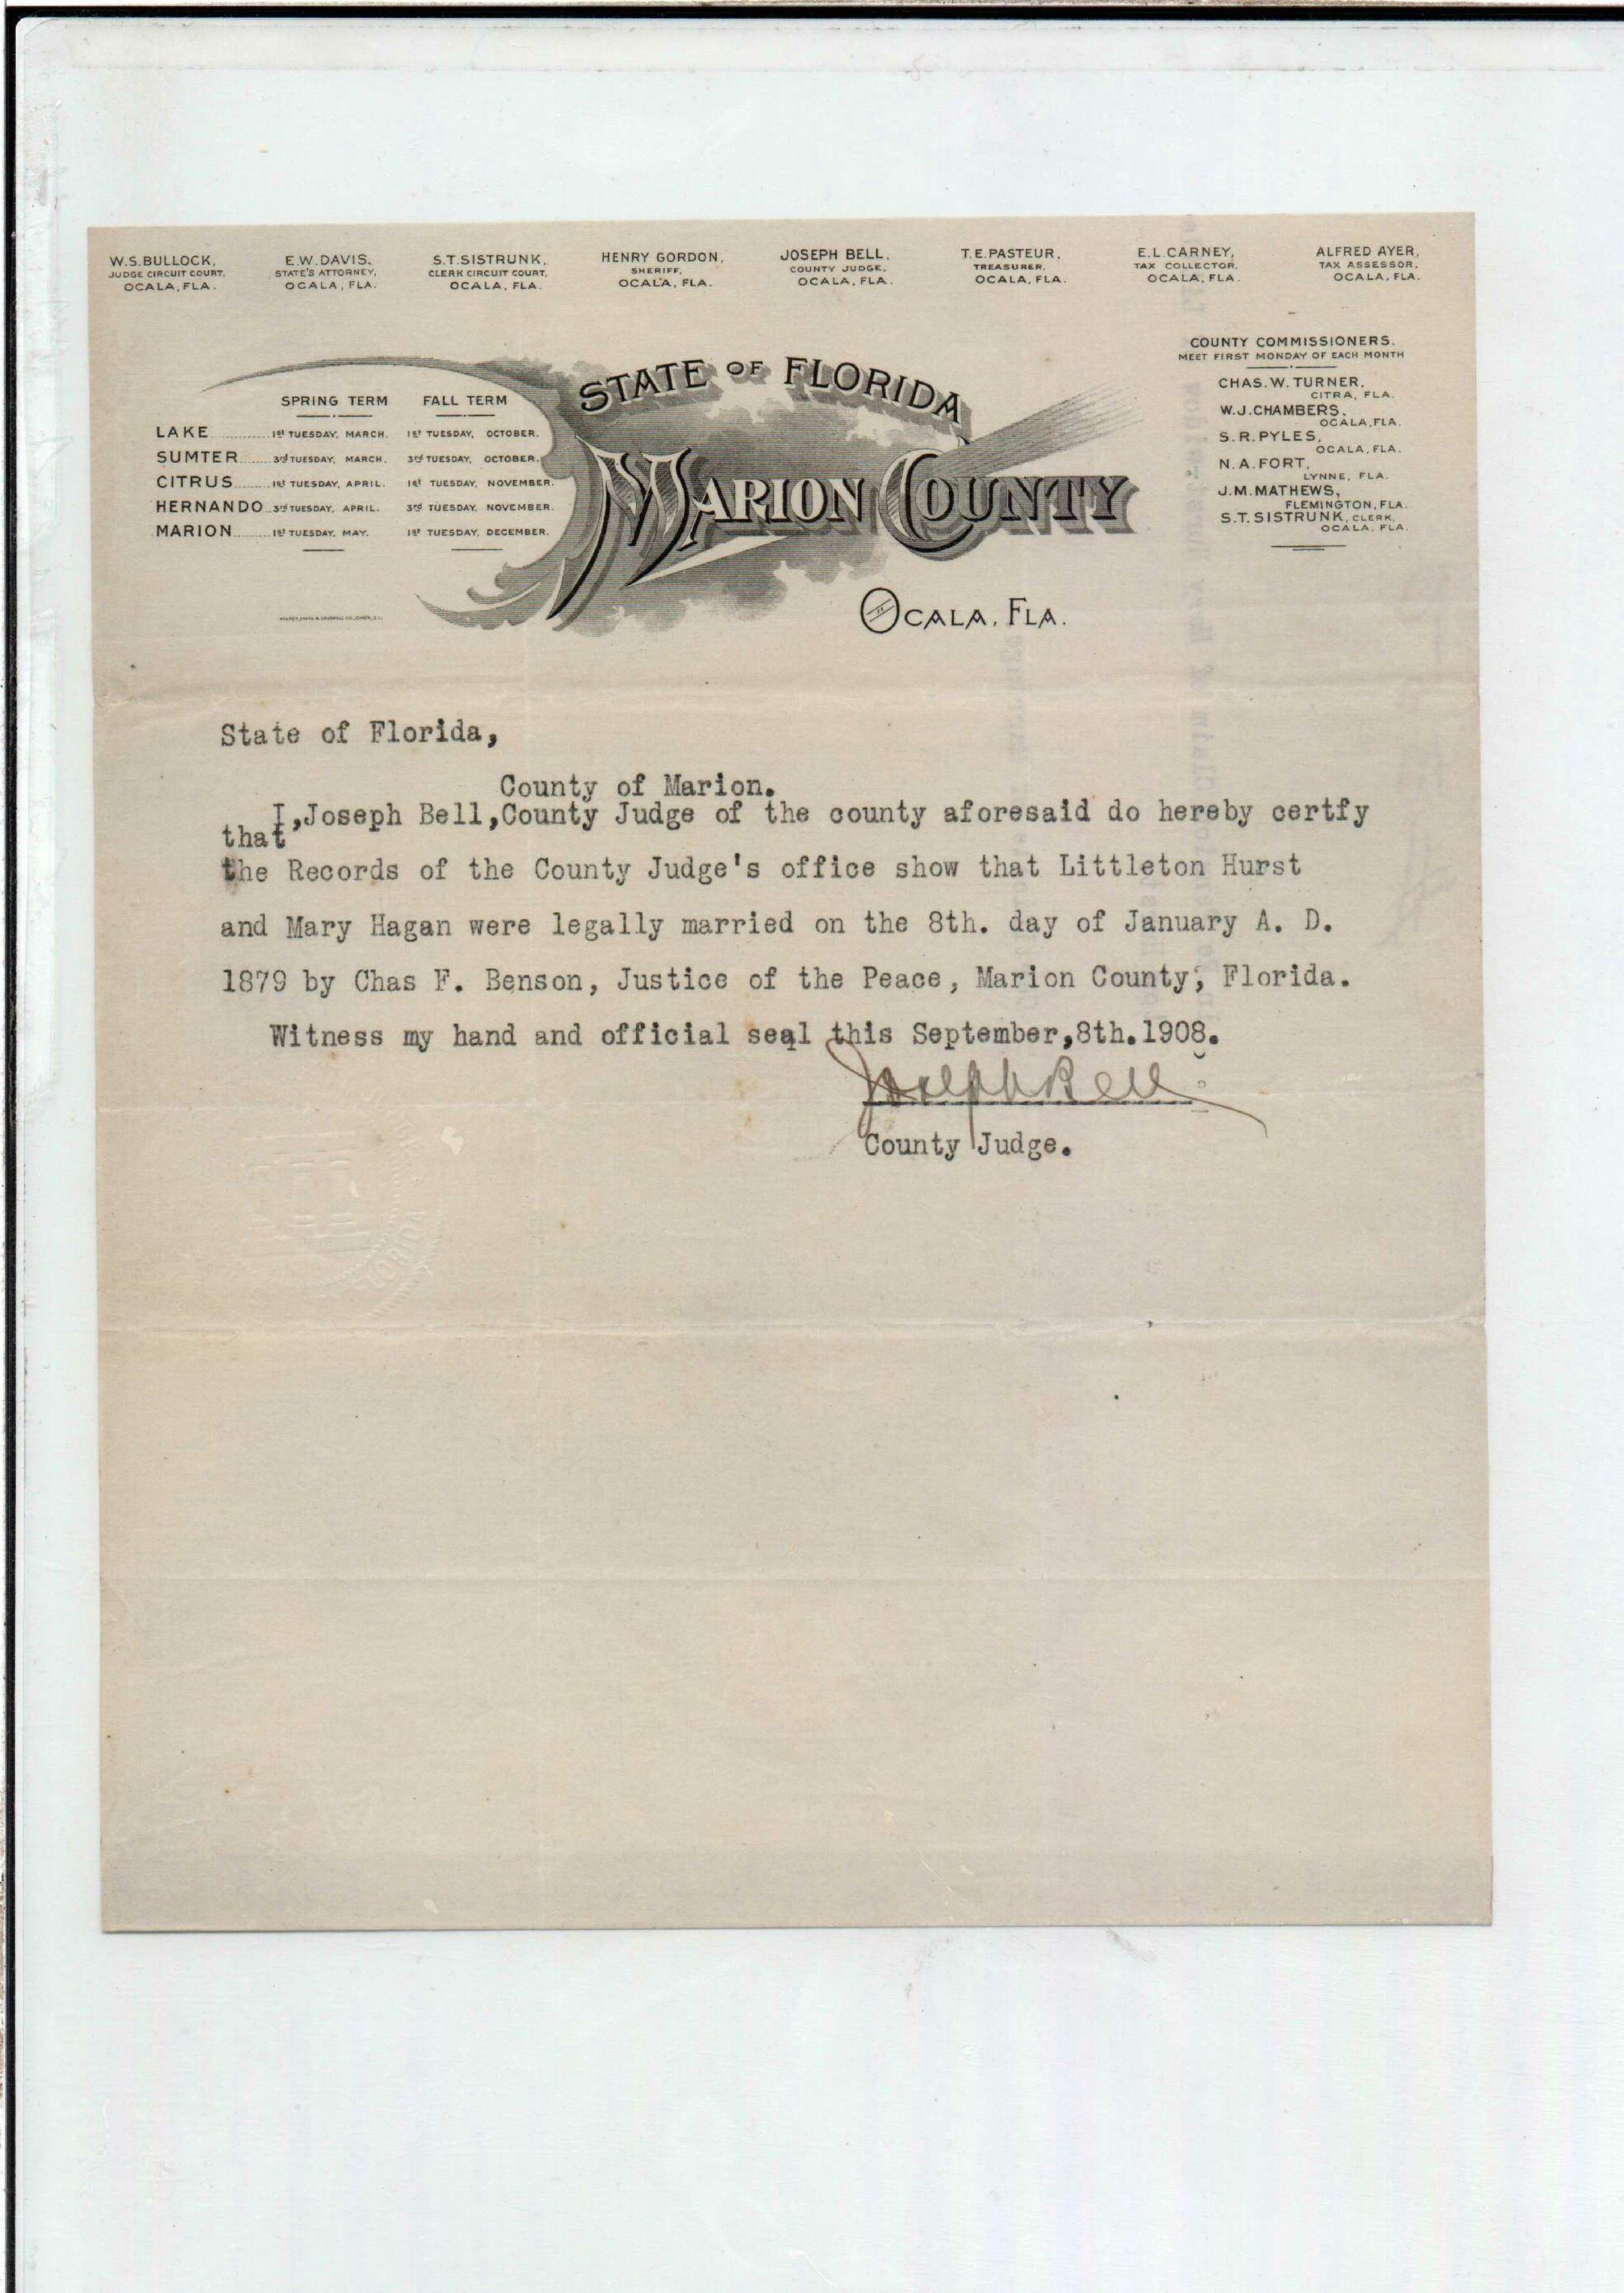 W.S.BULLOCK,
JUDGE CIRCUIT COURT,
OCALA, FLA.
E.W.DAVIS,
STATE'S ATTORNEY,
OCALA, FLA.
S.T.SISTRUNK,
CLERK CIRCUIT COURT,
OCALA, FLA.
HENRY GORDON,
SHERIFF,
OCALA, FLA.
JOSEPH BELL,
COUNTY JUDGE,
OCALA, FLA.
T.E.PASTEUR,
TREASURER,
OCALA, FLA.
E.L.CARNEY,
TAX COLLECTOR,
OCALA, FLA.
ALFRED AYER,
TAX ASSESSOR,
OCALA, FLA.
SPRING TERM FALL TERM
LAKE 1st TUESDAY, MARCH. 1st TUESDAY, OCTOBER.
SUMTER 3rd TUESDAY, MARCH. 3rd TUESDAY, OCTOBER.
CITRUS 1st TUESDAY, APRIL. 1st TUESDAY, NOVEMBER.
HERNANDO 3rd TUESDAY, APRIL. 3rd TUESDAY, NOVEMBER.
MARION 1st TUESDAY, MAY. 1st TUESDAY, DECEMBER.
STATE OF FLORIDA
MARION COUNTY
OCALA, FLA.
COUNTY COMMISSIONERS.
MEET FIRST MONDAY OF EACH MONTH
CHAS.W.TURNER,
CITRA, FLA.
W.J.CHAMBERS,
OCALA, FLA.
S.R.PYLES,
OCALA, FLA.
N.A.FORT,
LYNNE, FLA.
J.M.MATHEWS,
FLEMINGTON, FLA.
S.T.SISTRUNK, CLERK,
OCALA, FLA.
State of Florida,
County of Marion.
I,Joseph Bell,County Judge of the county aforesaid do hereby certfy
that
the Records of the County Judge's office show that Littleton Hurst
and Mary Hagan were legally married on the 8th. day of January A. D.
1879 by Chas F. Benson, Justice of the Peace, Marion County, Florida.
Witness my hand and official seal this September,8th.1908.
Joseph Bell
County Judge.